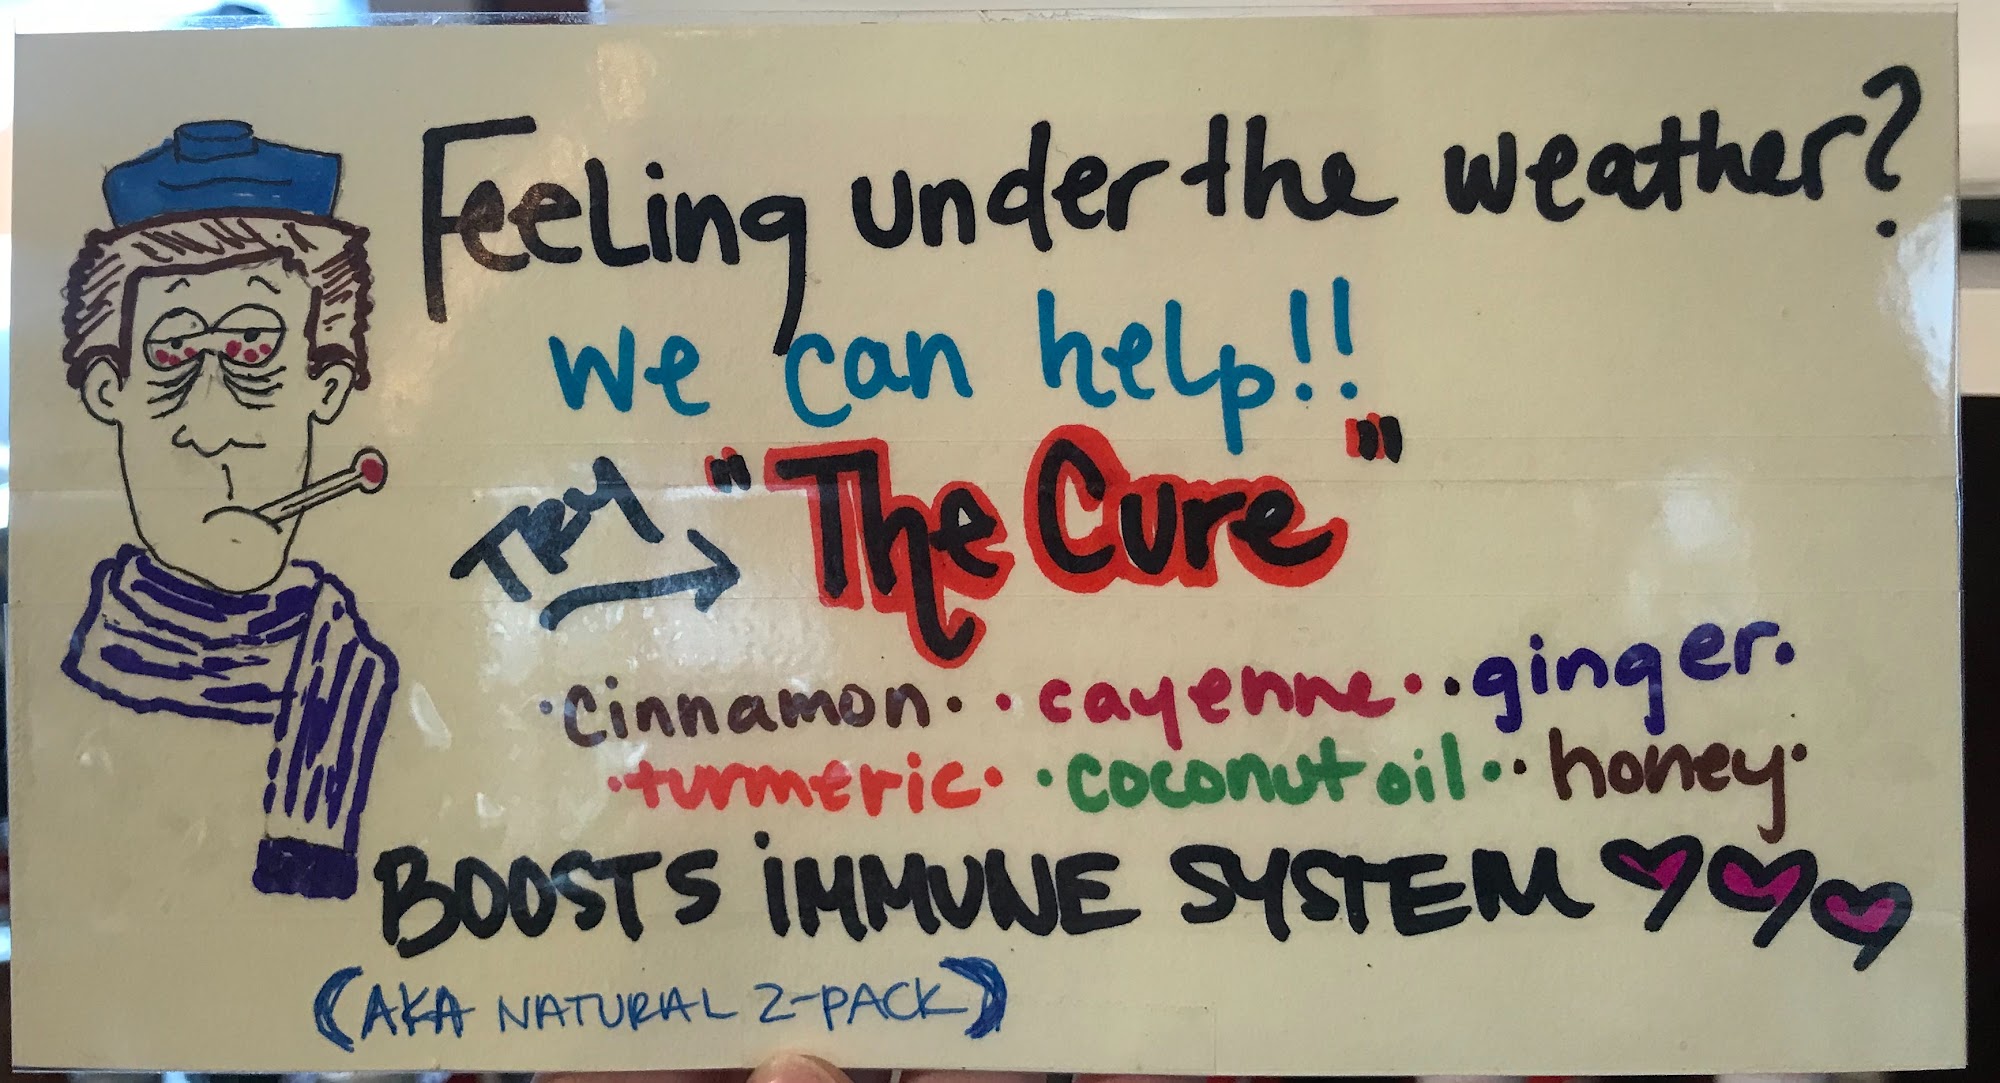 Feeling under the weather?
we can help!!
TRY "The Cure"
·cinnamon· ·cayenne· ·ginger·
·turmeric· ·coconut oil· ·honey·
BOOSTS iMMUNE SYSTEM
(AKA NATURAL Z-PACK)